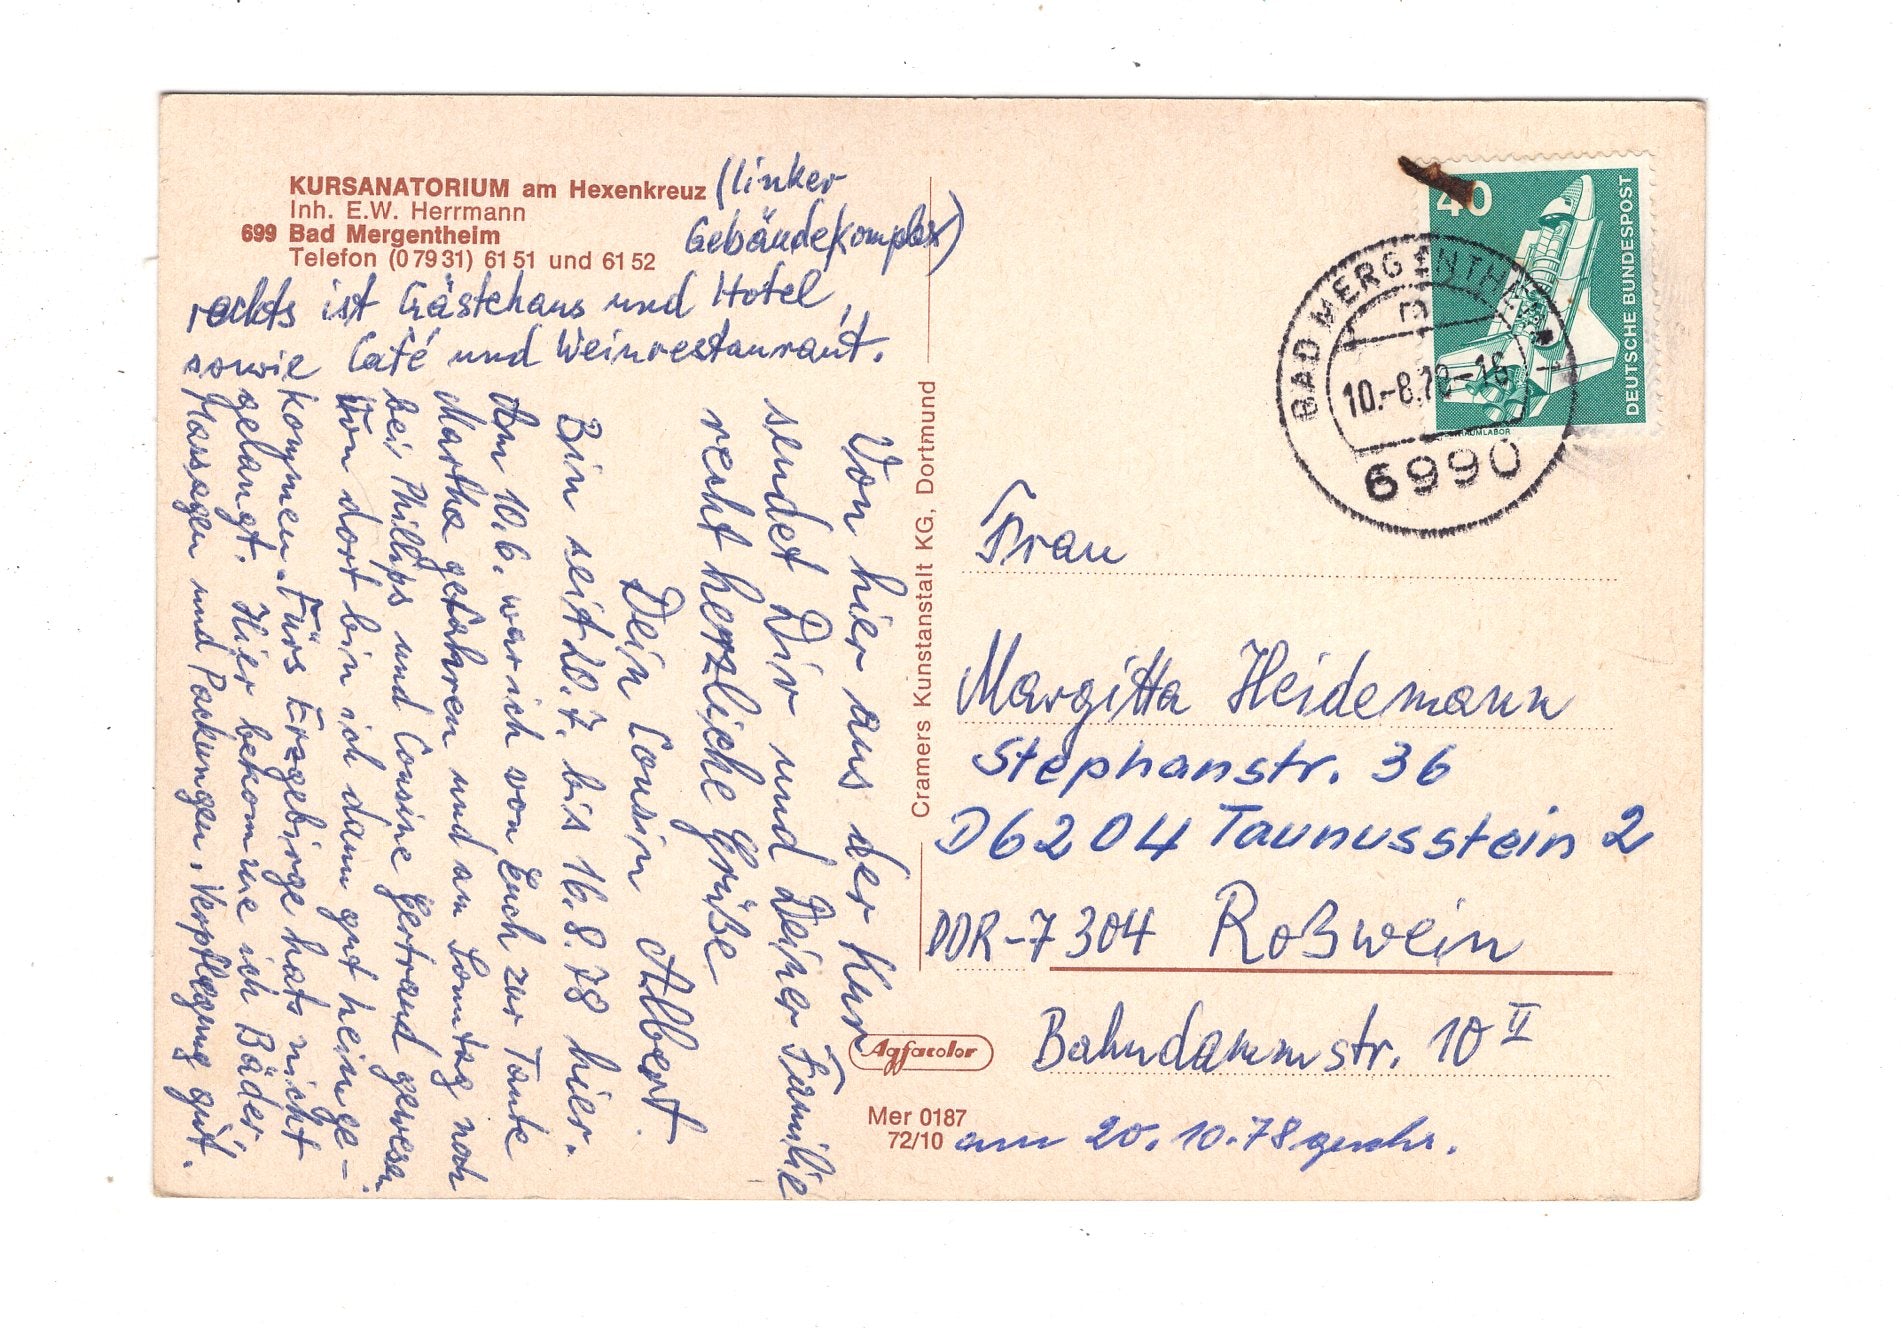 KURSANATORIUM am Hexenkreuz
Inh. E.W. Herrmann
699 Bad Mergentheim
Telefon (0 79 31) 61 51 und 61 52
(linker
Gebäudekomplex)
rechts ist Gästehaus und Hotel,
sowie Café und Weinrestaurant.
Von hier aus der Kur
sendet Dir und Deiner Familie
recht herzliche Grüße
Dein Cousin Albert.
Bin seit 20.7. bis 16.8.78 hier.
Am 10.6. war ich von Euch zur Tante
Martha gefahren und am Sonntag noch
bei Phillips und Cousine Gertraud gewesen.
Von dort bin ich dann gut heinge-
kommen. Fürs Erzgebirge hats nicht
gelangt. Hier bekomme ich Bäder,
Massagen und Packungen, Verpflegung gut.
Cramers Kunstanstalt KG, Dortmund
Agfacolor
Mer 0187
72/10
40
DEUTSCHE BUNDESPOST
BAD MERGENTHEIM 1
m
10.-8.78-16
6990
Frau
Margitta Heidemann
Stephanstr. 36
D6204 Taunusstein 2
DDR-7304 Roßwein
Bahndammstr. 10 II
am 20.10.78